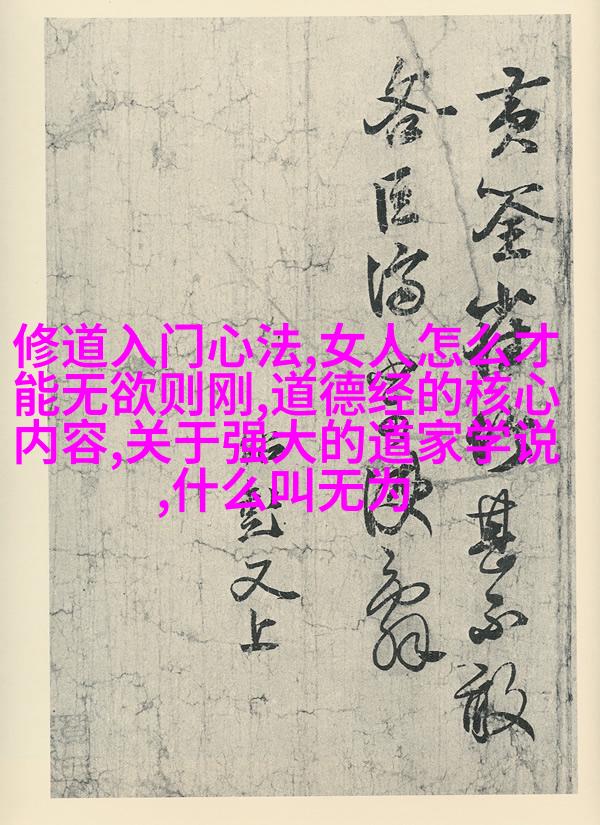 修道入门心法,女人怎么才
能无欲则刚,道德经的核心
内容,关于强大的道家学说
,什么叫无为
黄筌
甚不敢
又上